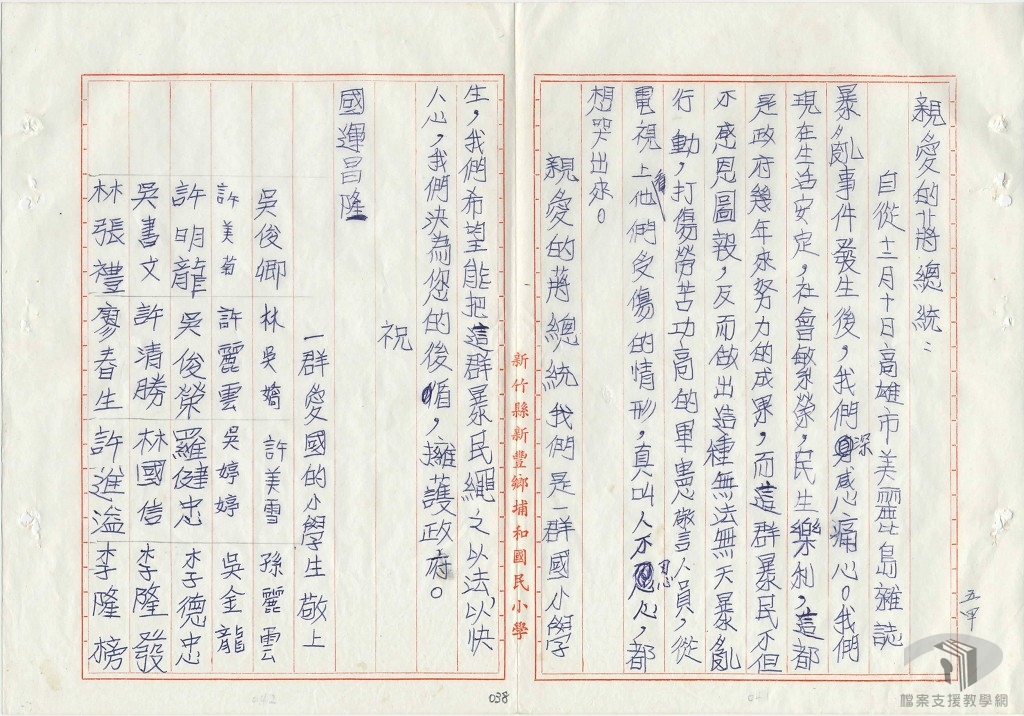 親愛的蔣總統：
自從十二月十日高雄市美麗島雜誌
暴亂事件發生後，我們深感痛心。我們
現在生活安定，社會繁榮，民生樂利，這都
是政府幾年來努力的成果，而這群暴民不但
不感恩圖報，反而做出這種無法無天暴亂
行動，打傷勞苦功高的軍憲警人員，從
電視上看他們受傷的情形，真叫人不忍心，都
想哭出來。
親愛的蔣總統我們是一群國小學
生，我們希望能把這群暴民繩之以法，以快
人心，我們決為您的後循，擁護政府。
祝
國運昌隆
一群愛國的小學生敬上
吳俊卿 林吳嬌 許美雪 孫麗雲
許美菊 許麗雲 吳婷婷 吳金龍
許明龍 吳俊榮 羅健忠 李德忠
吳書文 許清勝 林國信 李隆發
林張禮 廖春生 許進溢 李隆榜
新竹縣新豐鄉埔和國民小學
五甲
038
檔案支援教學網